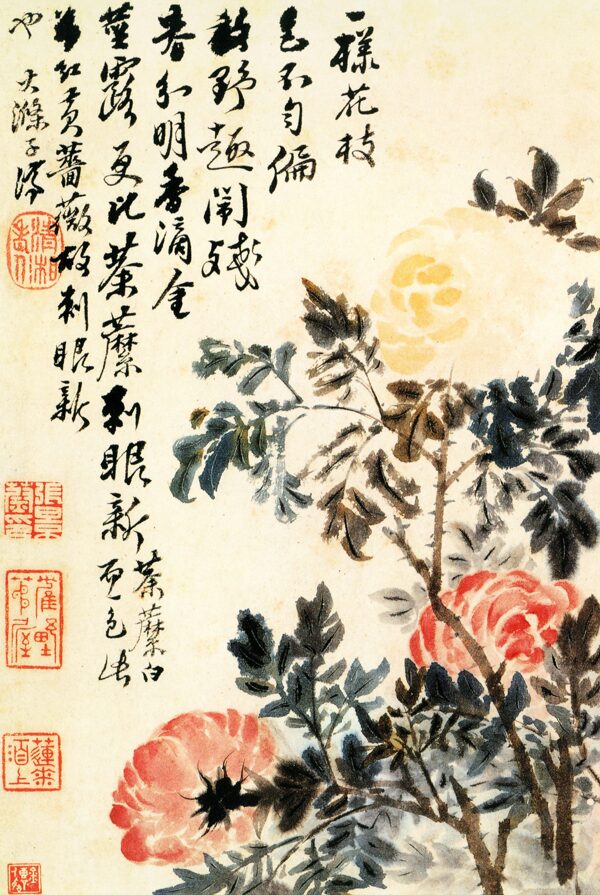 一樣花枝
色不勻偏
教野趣鬧殘
春分明香滴金
莖露更比荼蘼刺眼新
荼蘼白
而色
花紅黃薔薇故刺眼新
也 大滌子濟
清湘老人